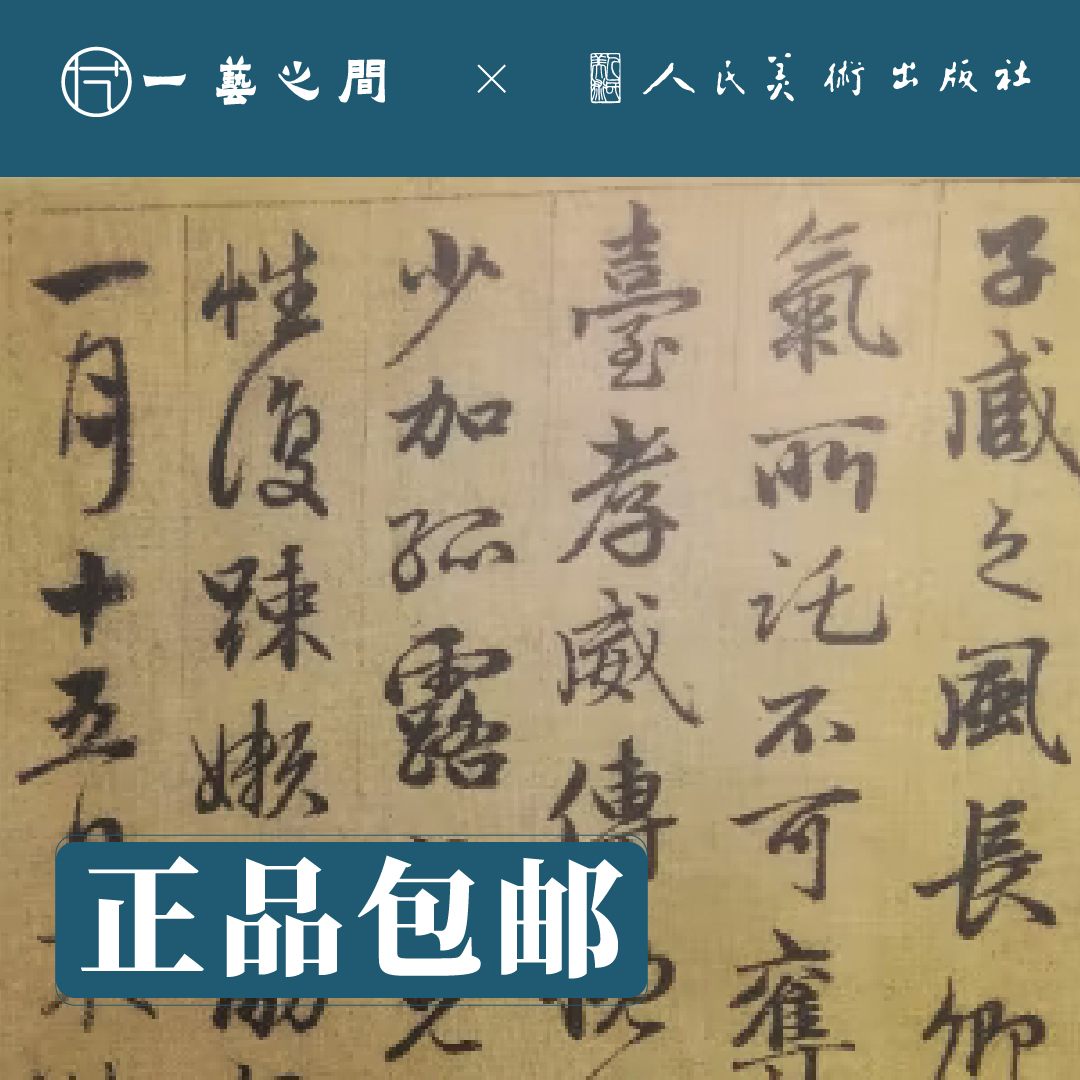 一藝之間 × 人民美術出版社
子臧之風長卿
氣所託不可奪
臺孝威傳
少加孤露
性復疎嬾
一月十五
正品包邮